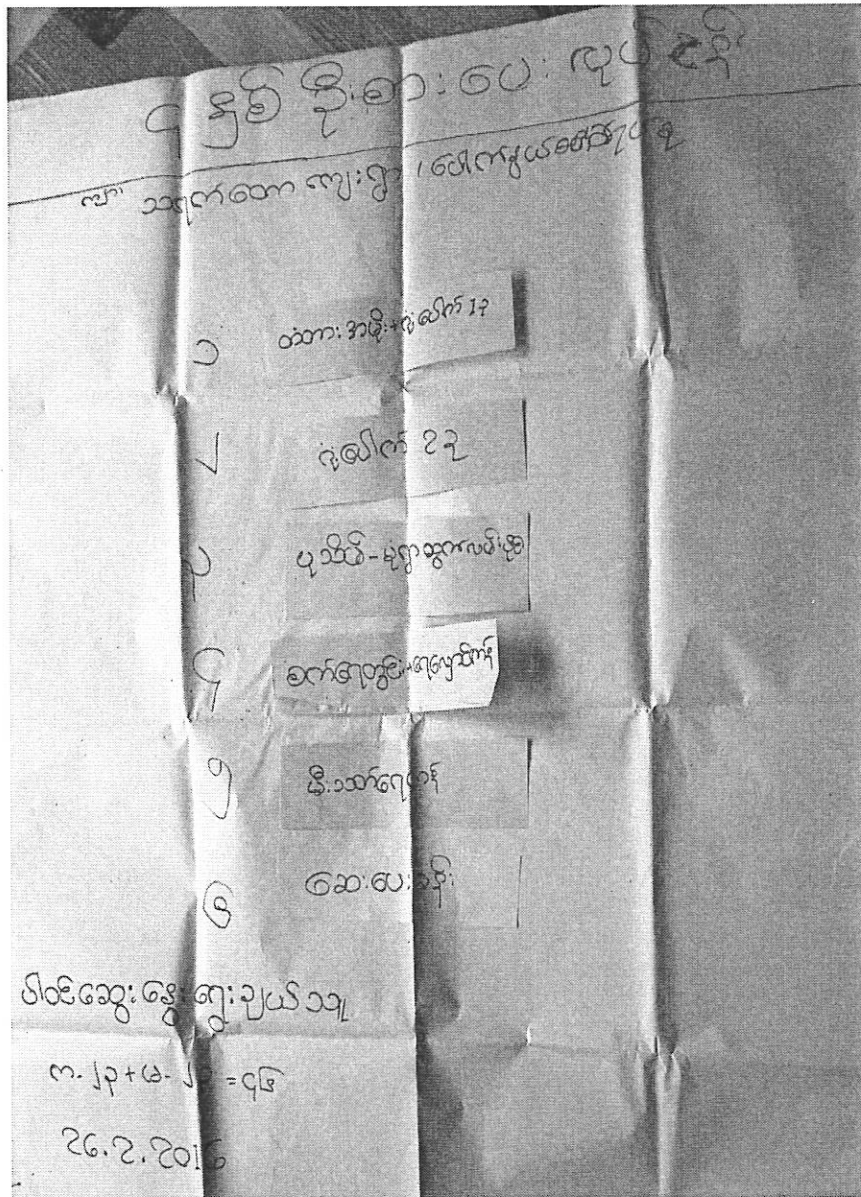 ၄ နှစ် ဦးစားပေး လုပ်ငန်း
သရက်တော ကျေးရွာ ၊ ပေါက်နွယ်
၁ တံတား အဖုံး + ဂုံးပေါက် 1 ခု
၂ ဂုံးပေါက် 2 ခု
၃ ပုသိမ် - မုံရွာထွက်လမ်း
၄ စက်ရေတွင်း + ရေလှောင်ကန်
၅ မီးသတ်ရေကန်
၆ ဆေးပေးခန်း
ပါဝင်ဆွေးနွေး ရွေးချယ်သူ
က - ၂၃ + မ - ၂၃ = ၄၆
26.2.2016